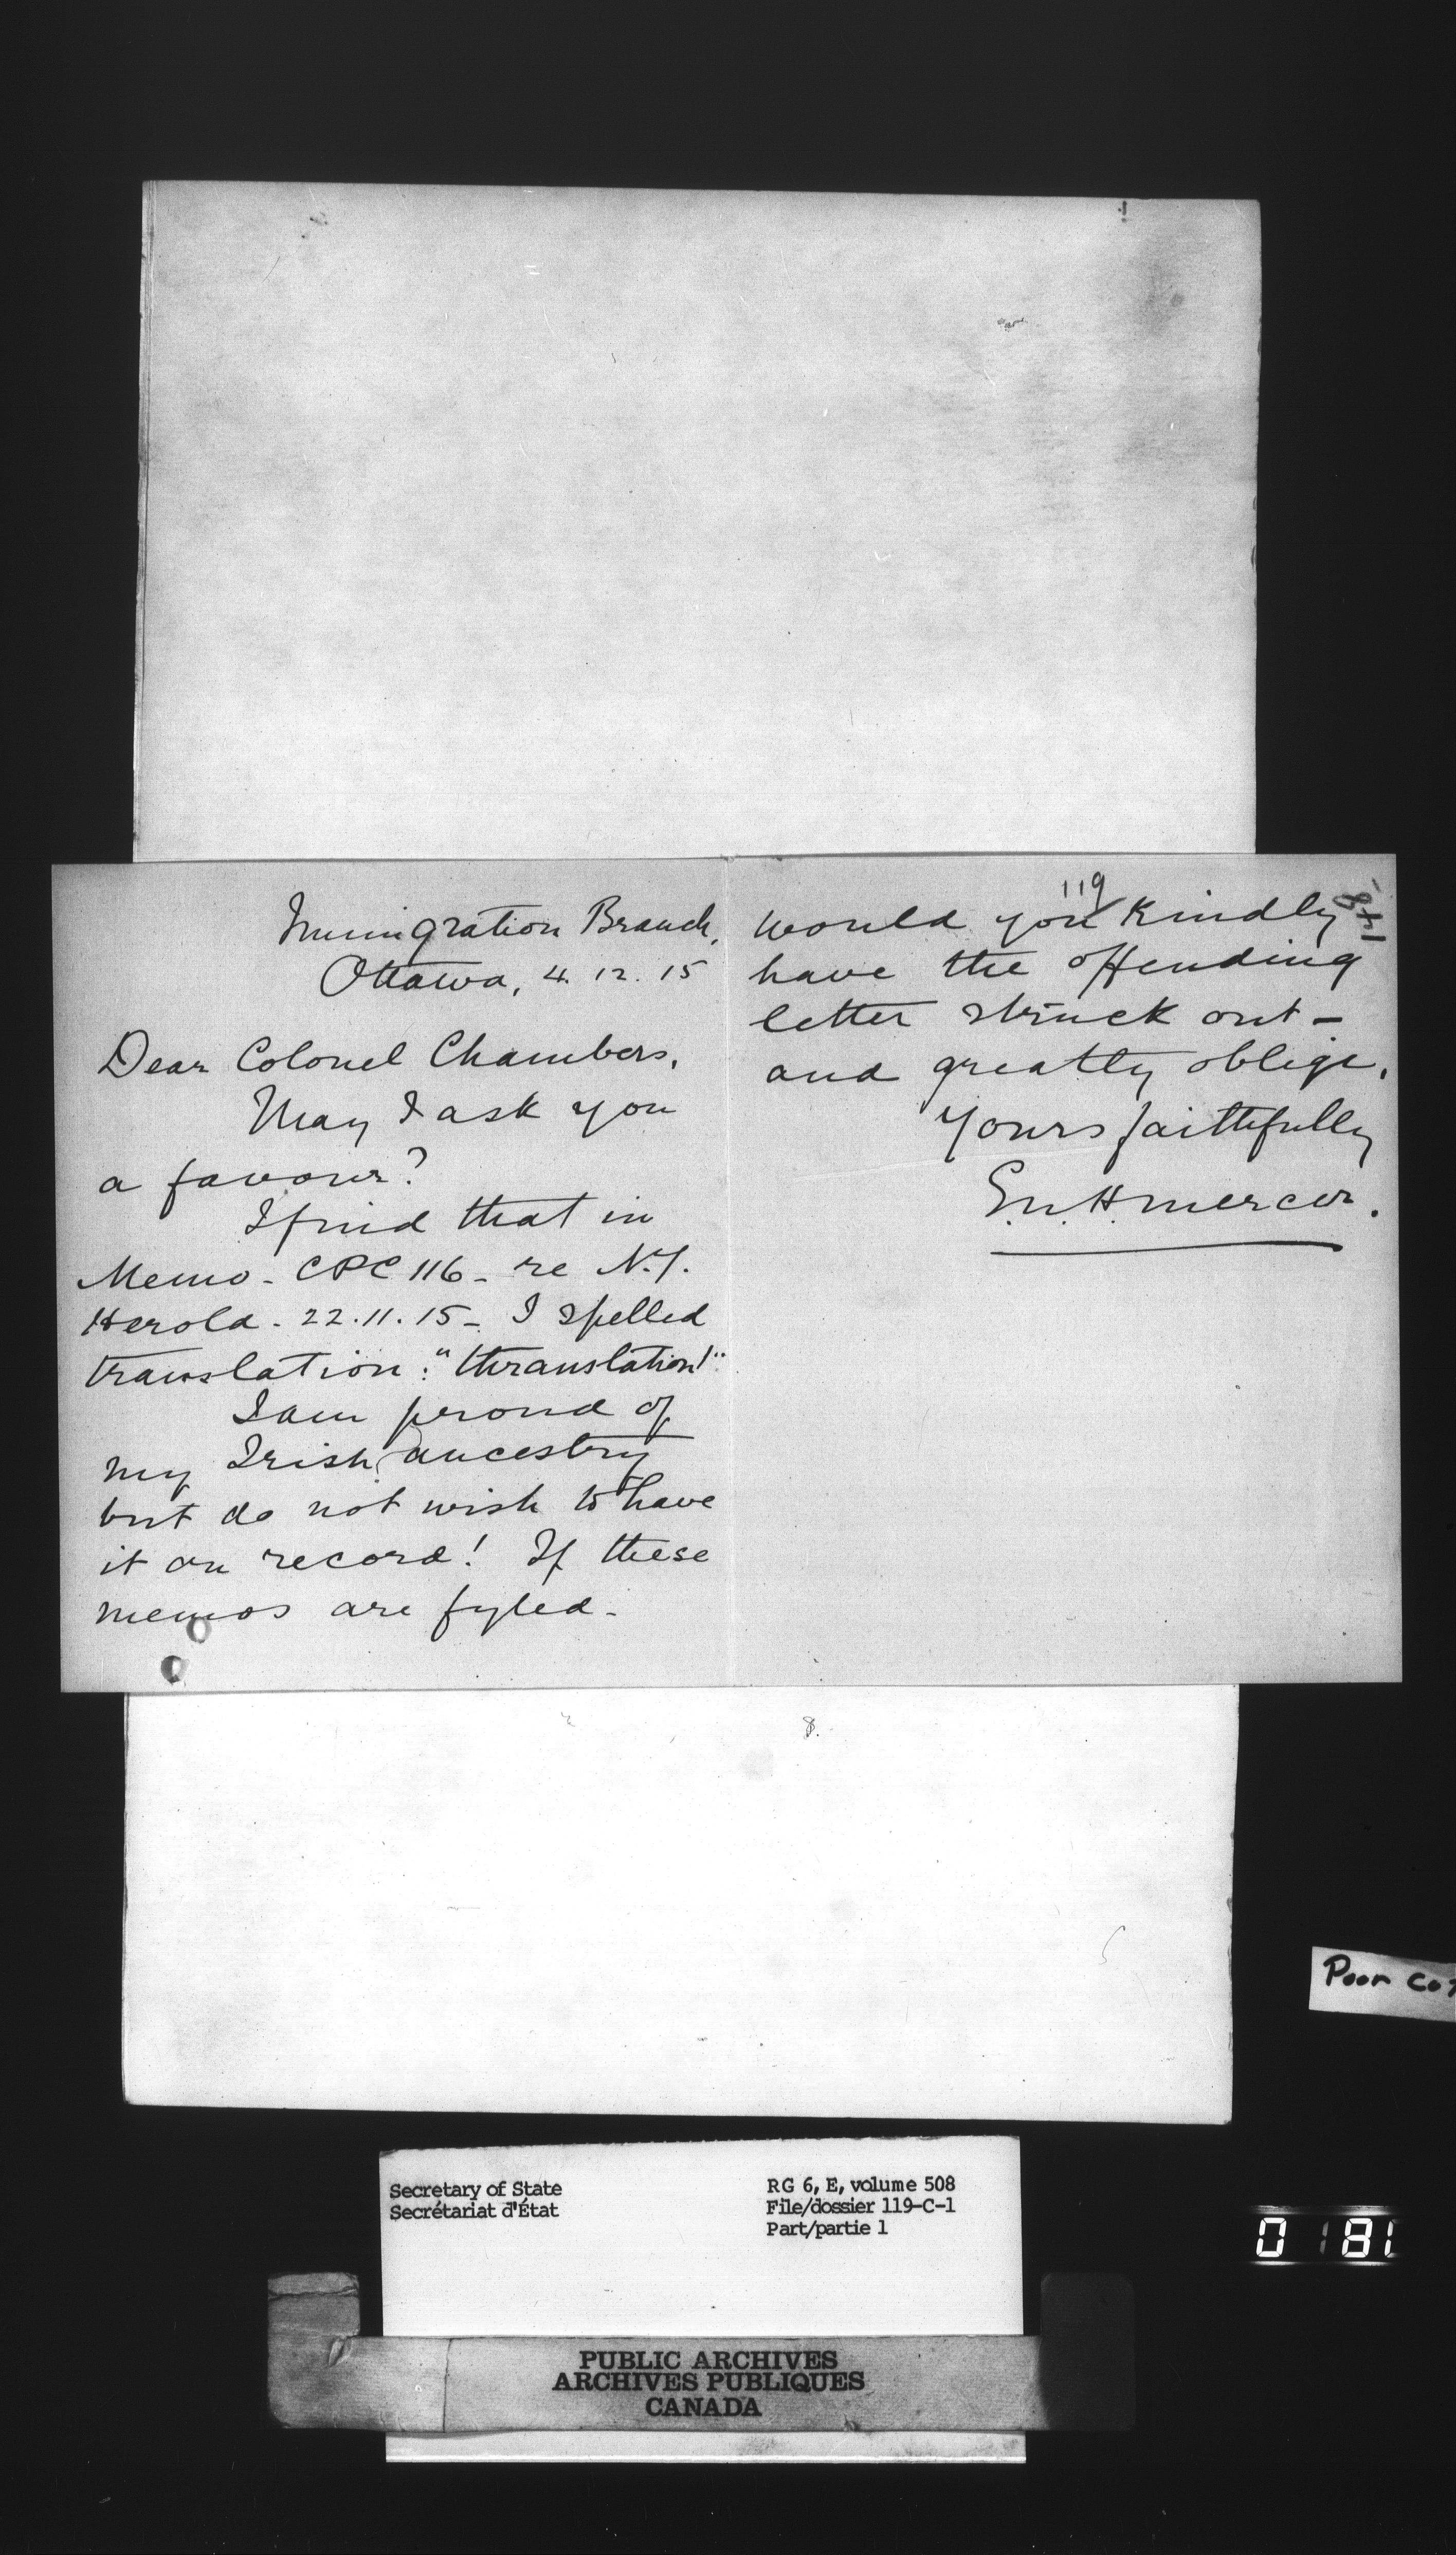 Immigration Branch,
Ottawa, 4. 12. 15
Dear Colonel Chambers,
May I ask you
a favour?
I find that in
Memo - CPC 116 - re N.Y.
Herold - 22.11.15 - I spelled
translation: "thranslation!"
I am proud of
my Irish ancestry
but do not wish to have
it on record! If these
memos are fyled -
119
would you kindly
have the offending
letter struck out -
and greatly oblige,
Yours faithfully
Mercer.
8.
Poor
Secretary of State
Secrétariat d'État
RG 6, E, volume 508
File/dossier 119-C-1
Part/partie 1
0181
PUBLIC ARCHIVES
ARCHIVES PUBLIQUES
CANADA